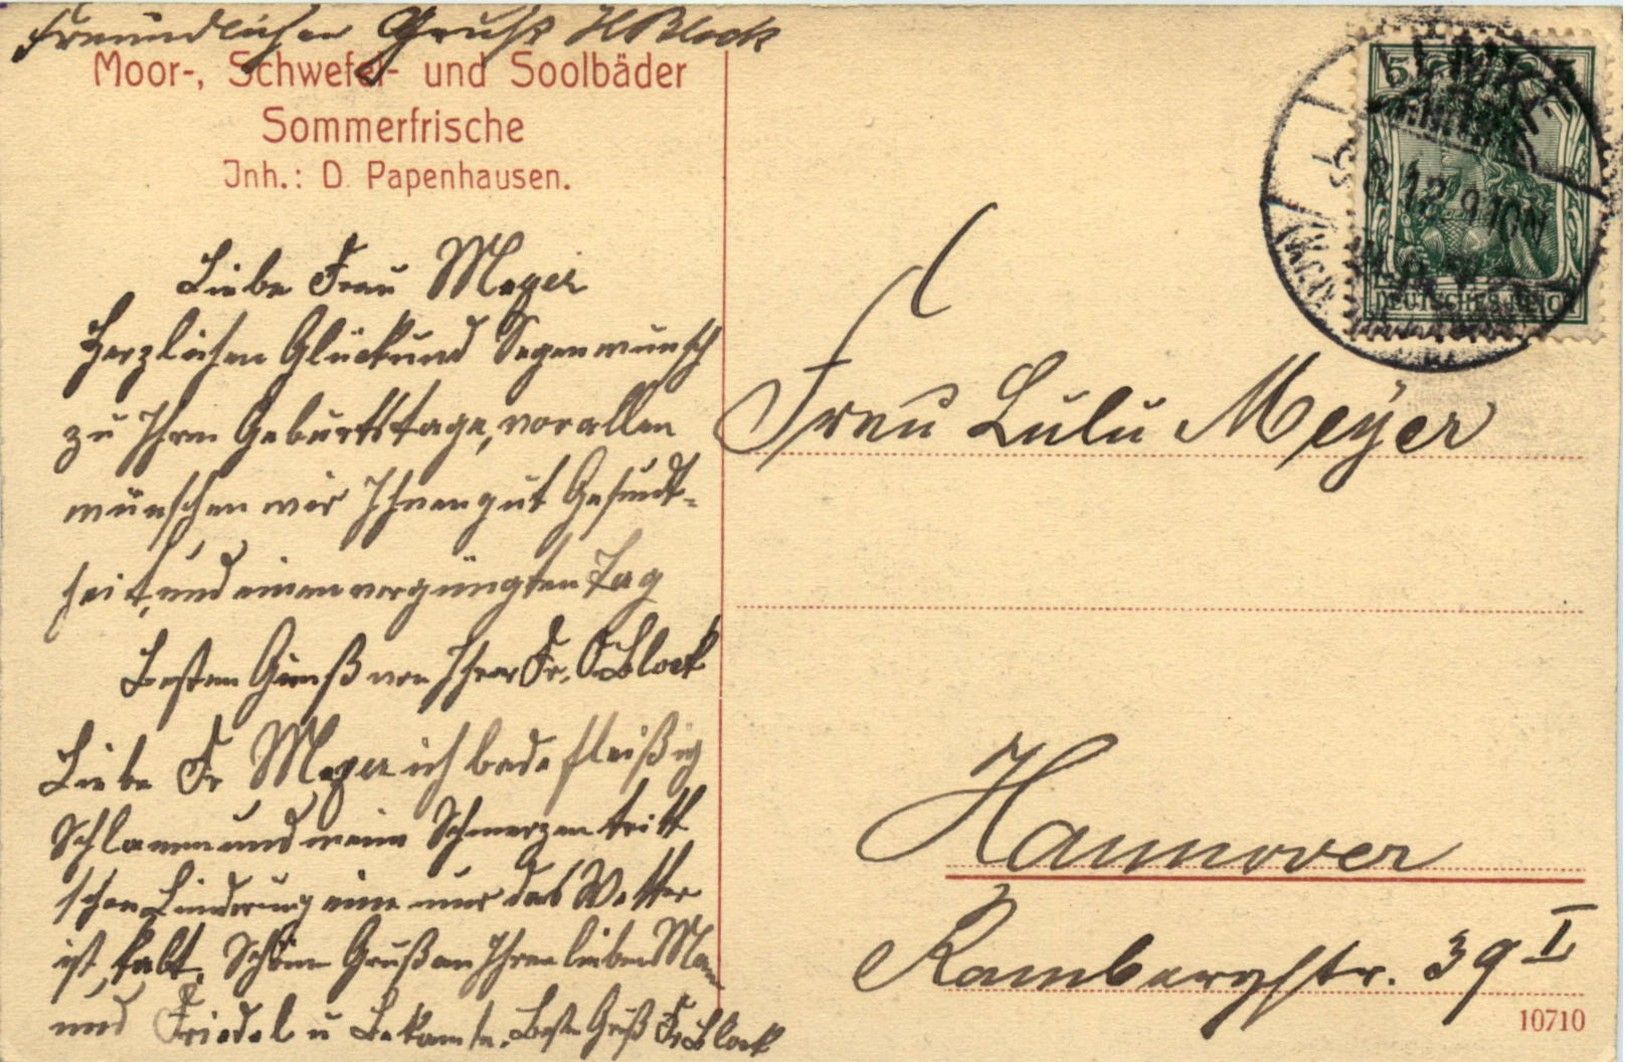 Freundlichen Gruß H Block
Moor-, Schwefel- und Soolbäder
Sommerfrische
Jnh.: D. Papenhausen.
Liebe Frau Meyer
Herzlichen Glückund Segenwunsch
zu Ihren Geburtstage, vor allen
wünschen wir Ihnen gut Gesundt-
heit, und einen vergüngten Tag
Besten Gruß von Ihrer Fr. Block
Liebe Fr Meyer ich bade fleißig
Schlamm und meine Schmerzen tritt
schon Linderung eine nur das Wetter
ist kalt. Schöne Gruß an Ihren lieben Man
und Friedel u Bekannte. Beste Gruß Fr. Block
5
DEUTSCHES REICH
12 9-10N
Frau Lulu Meyer
Hannover
Rambergstr. 39 I
10710